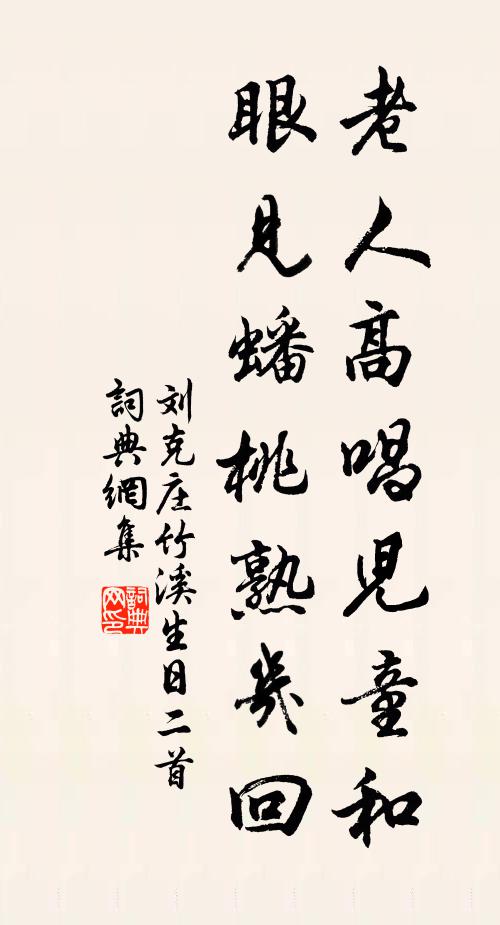 老人高唱児童和
眼見蟠桃熟幾回
刘克庄竹溪生日二首
詞典網集
詞典网印